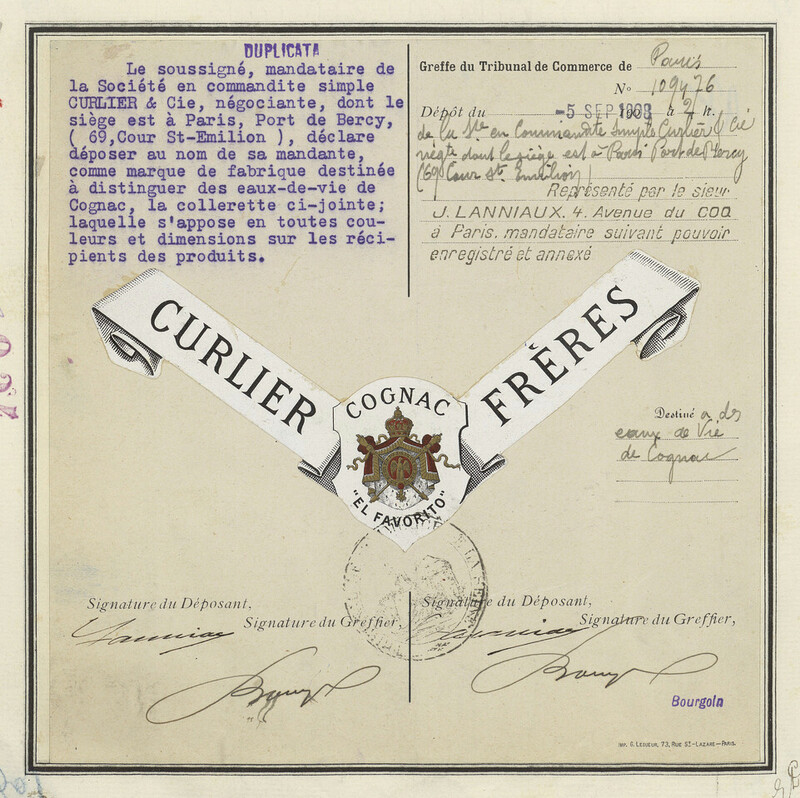 DUPLICATA
Le soussigné, mandataire de
la Société en commandite simple
CURLIER & Cie, négociante, dont le
siège est à Paris, Port de Bercy,
( 69,Cour St-Emilion ), déclare
déposer au nom de sa mandante,
comme marque de fabrique destinée
à distinguer des eaux-de-vie de
Cognac, la collerette ci-jointe;
laquelle s'appose en toutes cou-
leurs et dimensions sur les réci-
pients des produits.
Greffe du Tribunal de Commerce de Paris
No 109476
Dépôt du -5 SEP à 2 h.
de la Sté en Commandite simple Curlier & Cie
négte dont le siège est à Paris Port de Bercy
(69 Cour St. Emilion)
Représenté par le sieur
J. LANNIAUX. 4. Avenue du COQ
à Paris. mandataire suivant pouvoir
enregistré et annexé
CURLIER FRÈRES
COGNAC
"EL FAVORITO"
Destiné a des
eaux de Vie
de Cognac
Signature du Déposant,
Signature du Greffier,
Signature du Déposant,
Signature du Greffier,
Bourgoin
IMP. G. LEQUEUR, 73, RUE ST-LAZARE—PARIS.